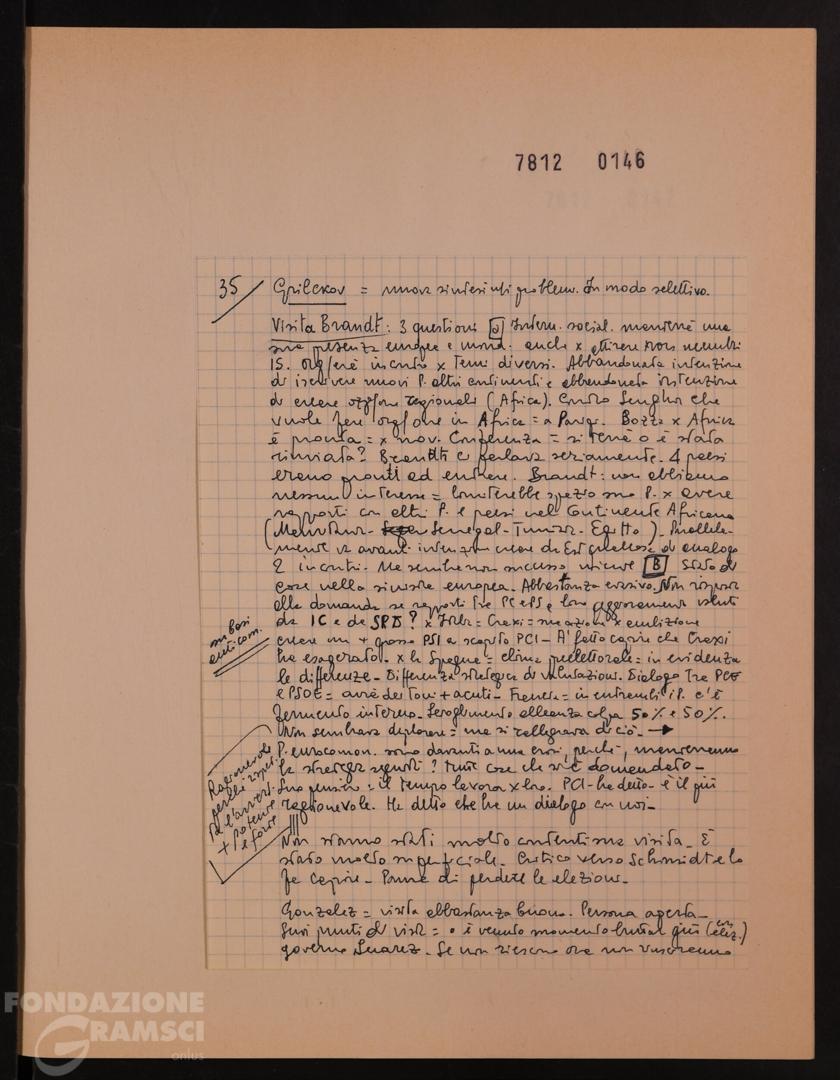 7812 0146
35 Grilckov = nuova sintesi problem. In modo selettivo.
Visita Brandt: 3 questioni [a] Intern. social. mantiene una
sua presenza europea e mond. anche x attirare non membri
IS. Org/ne incontri x temi diversi. Abbandonata intenzione
di iscrivere nuovi P. altri continenti e abbandonata intenzione
di creare org/ne regionali (Africa). Contro Senghor che
vuole fare org/one in Africa = a Parigi. Bozza x Africa
è pronta = x nov. Conferenza = si terrà o è stata
rinviata? Brandt ci parlava seriamente. 4 paesi
erano pronti ad entrare. Brandt: non abbiamo
nessun interesse = limiterebbe spazio suo P. x avere
rapporti con altri P. e paesi nel Continente Africano
( - Senegal - Tunis. - Egitto). Parallela-
mente va avanti intenzione creare da Est qualcosa di analogo
2 incontri. Ma sembra non successo [B] Stato di
cose nella sinistra europea. Abbastanza evasivo. Non risposto
alla domanda se rapporti tra PC e PS e loro aggravamento voluti
da IC e da SPD? x Italia = Craxi = sua azione x ambizione
creare un + grosso PSI a scapito PCI - À fatto capire che Craxi
su basi
anticom.
ha esagerato. x la Spagna = clima preelettorale = in evidenza
le differenze. Differenza strategica di valutazioni. Dialogo tra PCE
e PSOE = avrà dei toni + acuti - Francia = in entrambi i P. c'è
fermento interno. Scioglimento alleanza colpa 50% e 50%.
Non sembrava deplorare = ma si rallegrava di ciò. →
P. eurocomun. sono davanti a una crisi, perché, manterranno
la strategia seguita? Tutte cose che si è domandato -
Suo pensiero = il tempo lavora x loro. PCI - ha detto - è il più
ragionevole. Ha detto che ha un dialogo con noi -
Ragionevole
perché rispet-
ta l'avvers.
+ potente
e forte
Non siamo stati molto contenti sua visita. È
stato molto superficiale. Critico verso Schmidt e lo
fa capire - Paura di perdere le elezioni -
Gonzalez = visita abbastanza buona. Persona aperta -
Suoi punti di vista = • è venuto momento buttar giù (con
eliz.)
governo Suarez - Se non riescono ora non riusciranno
FONDAZIONE
GRAMSCI
onlus